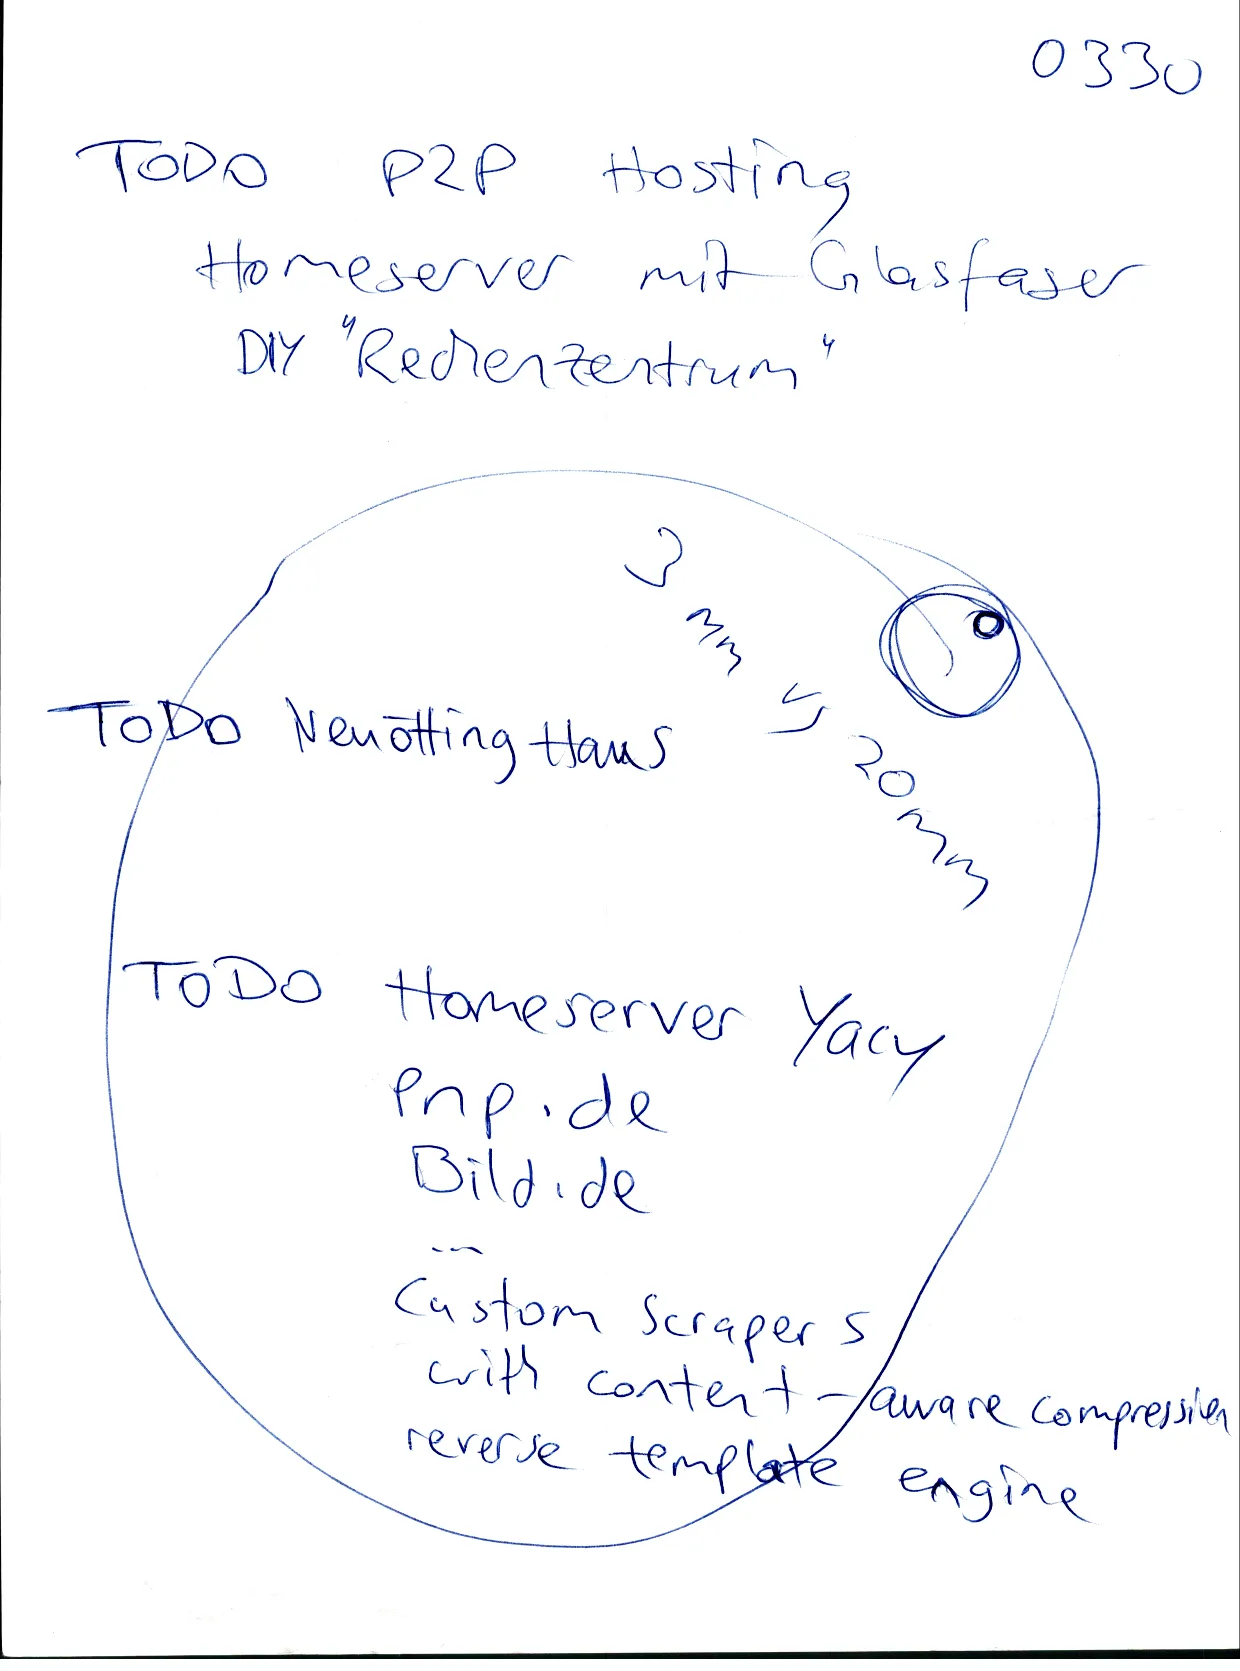 0330
TODO P2P Hosting
Homeserver mit Glasfaser
DIY "Rechenzentrum"
3 mm
5
20 mm
TODO Neuötting Haus
TODO Homeserver Yacy
pnp.de
Bild.de
...
Custom Scrapers
with content-aware compression
reverse template engine